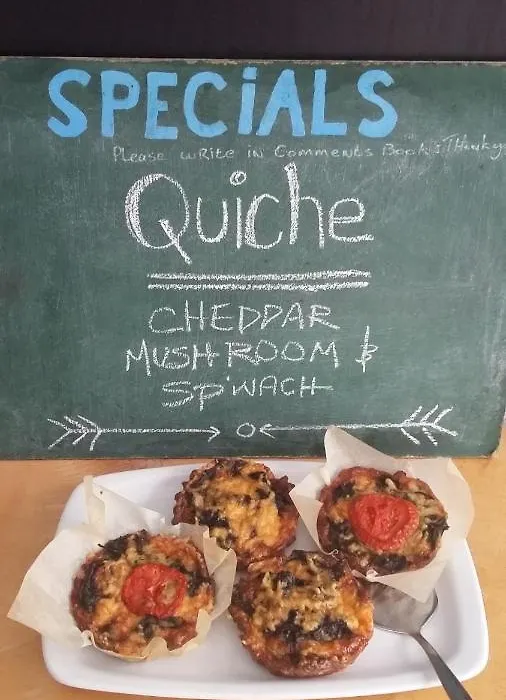 SPECiALS
Please write in Comments Book :) Thankyo
Quiche
CHEDDAR
MUSHROOM &
SPiNACH